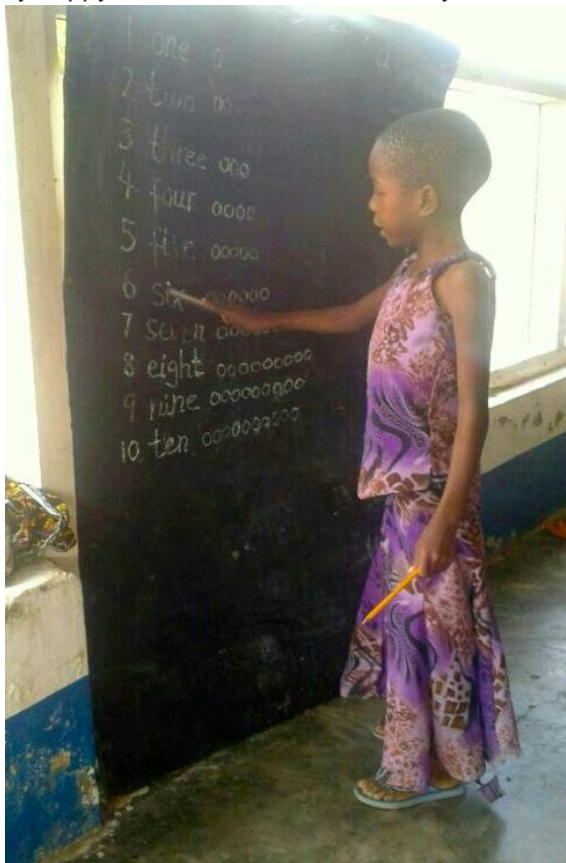 1 one o
2 two oo
3 three ooo
4 four oooo
5 five ooooo
6 six oooooo
7 seven oooooo
8 eight ooooooooo
9 nine ooooooooo
10 ten ooooooooo